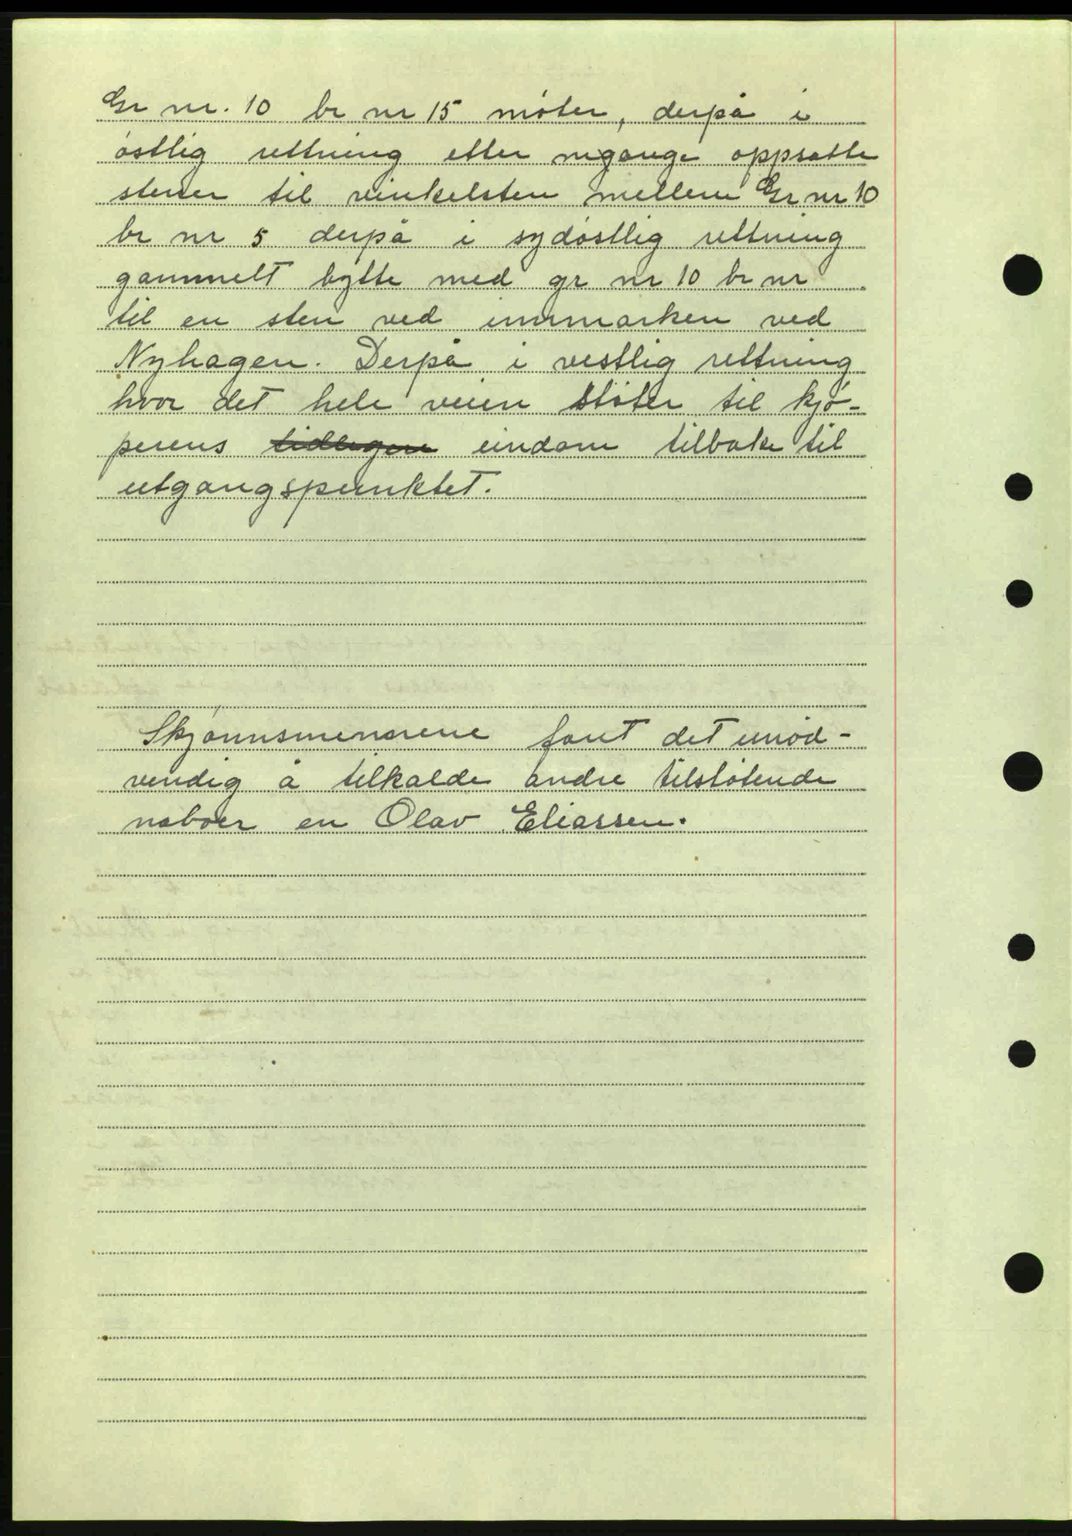 Gr nr. 10 br nr 15 møter, derpå i
østlig rettning etter oppsatte
stener til vinkelsten mellem Gr nr 10
br nr 5 derpå i sydøstlig rettning
gammelt bytte med gr nr 10 br nr
til en sten ved innmarken ved
Nyhagen. Derpå i vestlig rettning
hvor det hele veien støter til kjø-
perens tidligere eindom tilbake til
utgangspunktet.
Skjønnsmennene fant det unød-
vendig å tilkalde andre tilstøtende
naboer en Olav Eliassen.